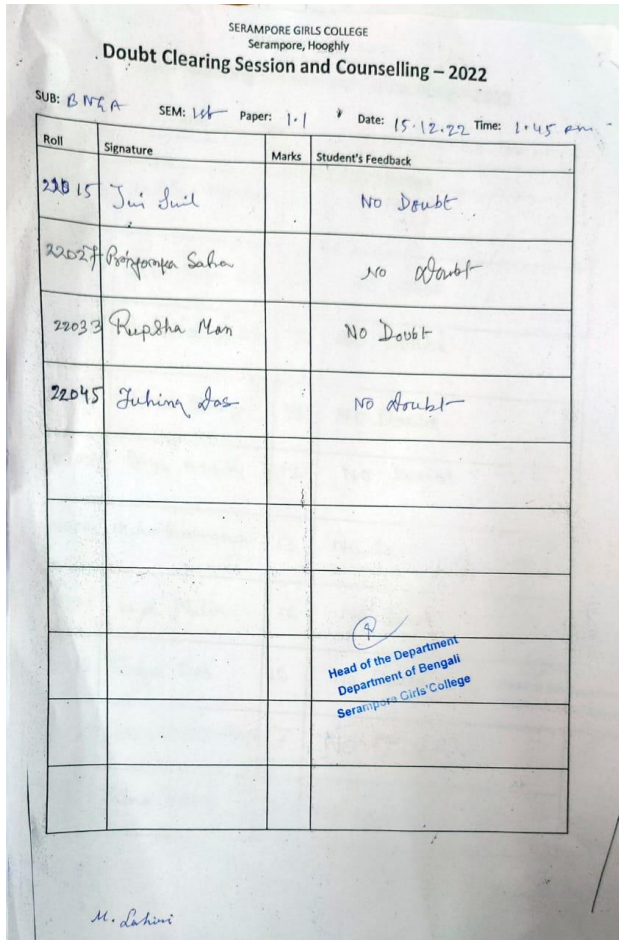 SERAMPORE GIRLS COLLEGE
Serampore, Hooghly
Doubt Clearing Session and Counselling – 2022
SUB: BNGA SEM: 1st Paper: 1.1 Date: 15.12.22 Time: 1.45 pm
Roll Signature Marks Student's Feedback
22015 No Doubt
22027 Saha No Doubt
22033 Rupsha Man No Doubt
22045 Tuhina Das No Doubt
Head of the Department
Department of Bengali
Serampore Girls' College
M. Lahiri